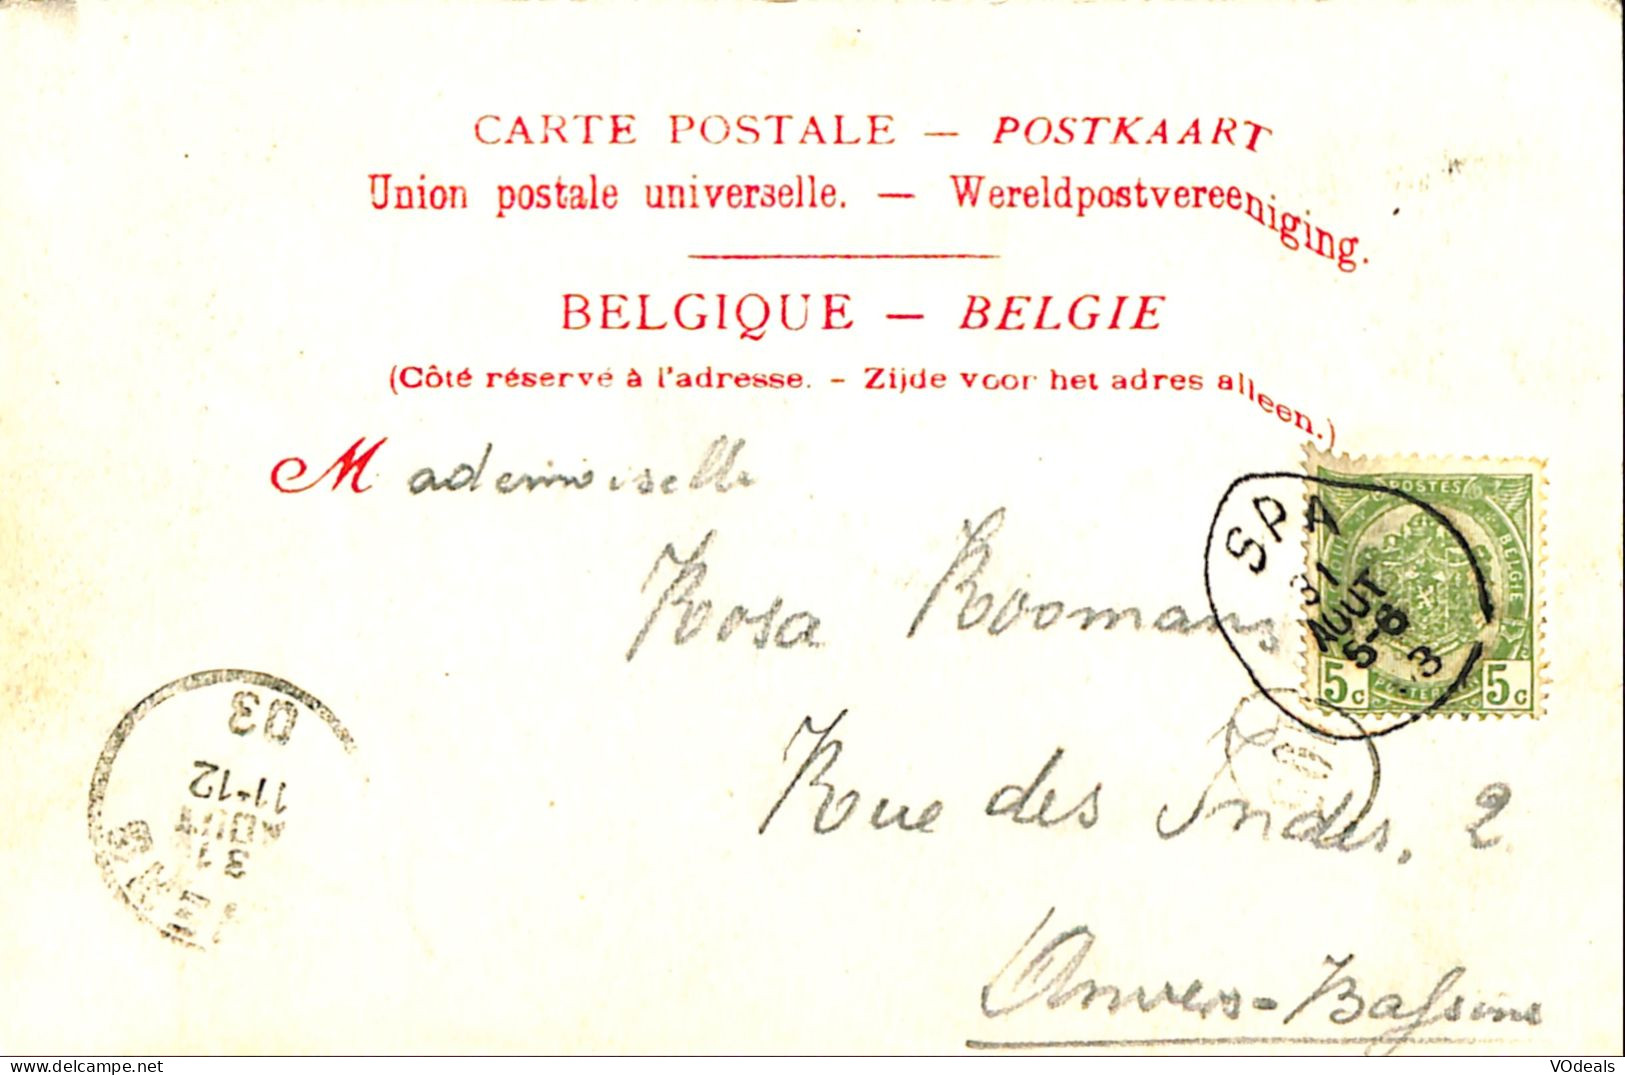 CARTE POSTALE — POSTKAART
Union postale universelle. — Wereldpostvereeniging.
BELGIQUE — BELGIE
(Côté réservé à l'adresse. - Zijde voor het adres alleen.)
Mademoiselle
Rosa Roomans
Rue des Indes, 2
Anvers-Bassins
POSTES
BELGIE
5c 5c
SPA
31
AOUT
5-6
3
03
11-12
AOUT
31
VOdeals